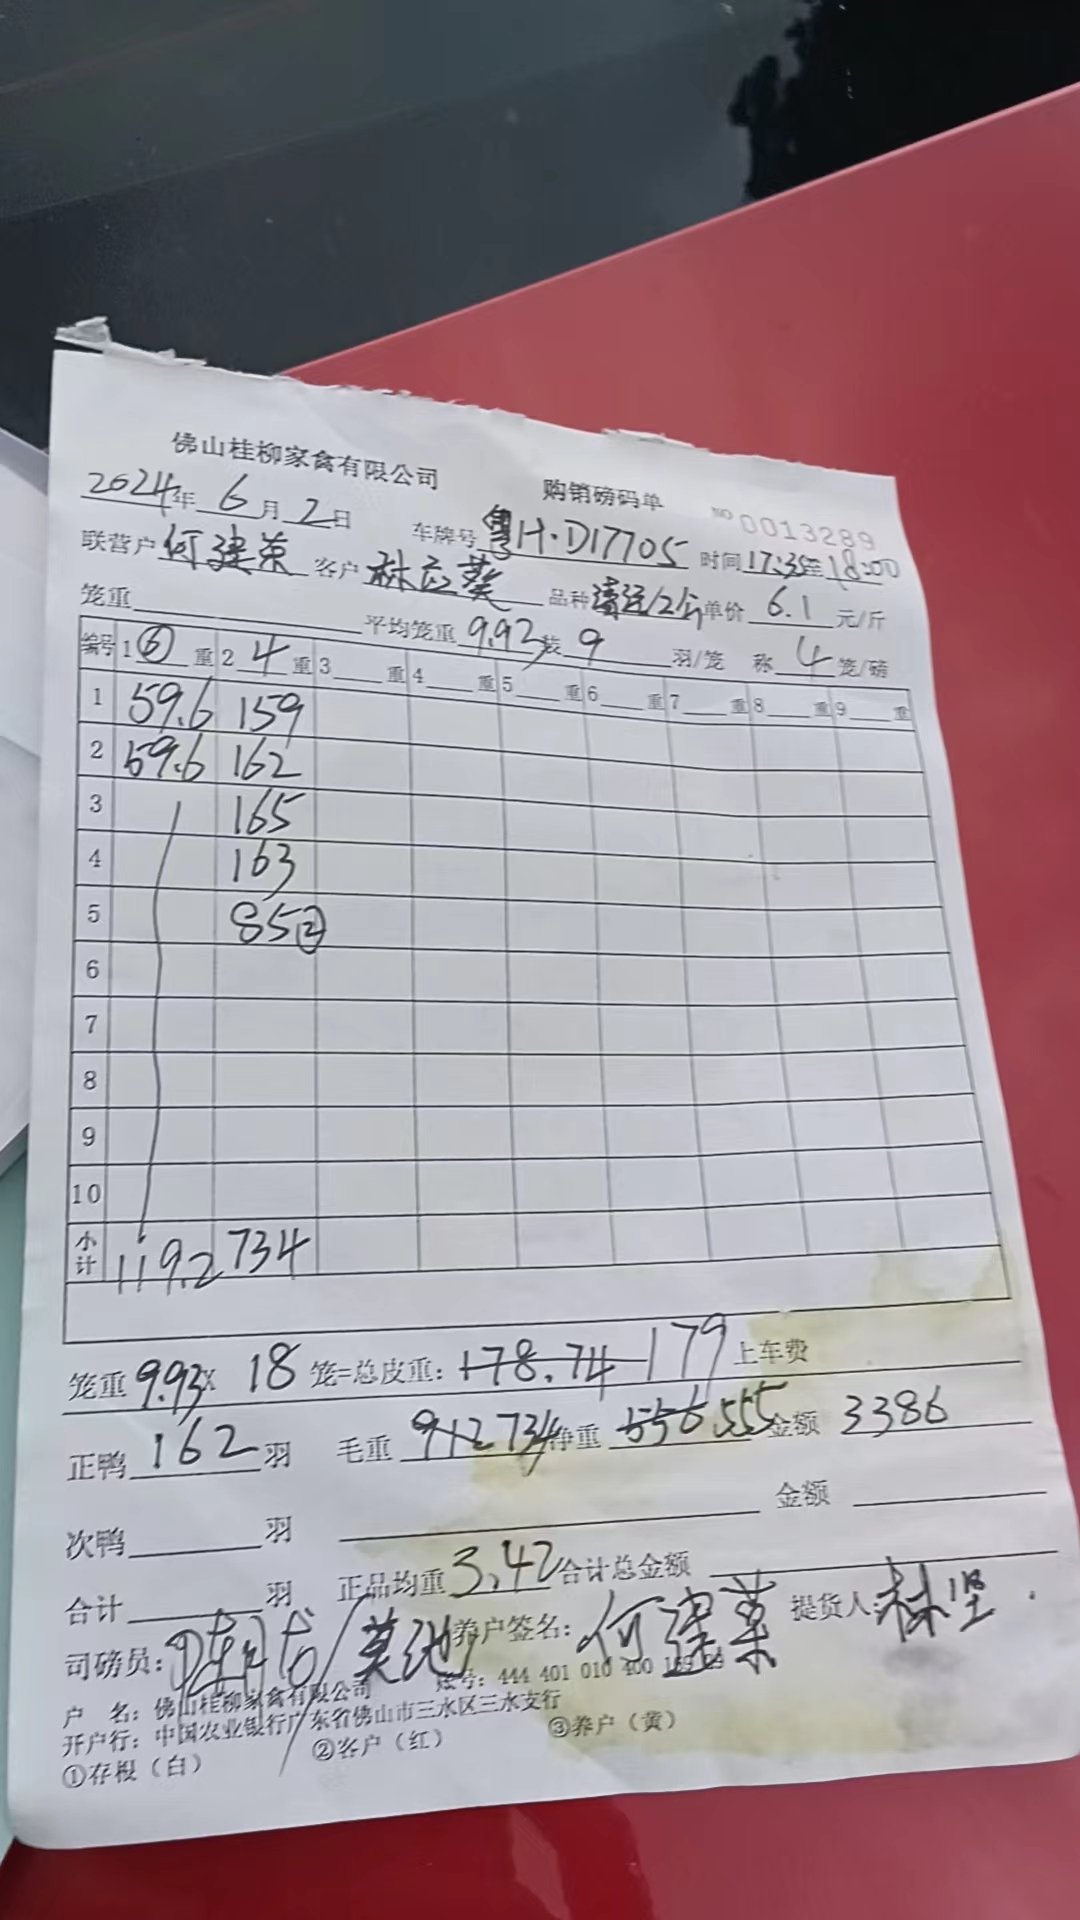 佛山桂柳家禽有限公司 购销磅码单 NO 0013289
2024年 6月 2日 车牌号 粤H·D17705 时间 17:35至18:00
联营户 何建荣 客户 林应葵 品种 清远/2台 单价 6.1 元/斤
笼重 平均笼重 9.92 装 9 羽/笼 称 4 笼/磅
编号 1 ⑥ 重 2 4 重 3 重 4 重 5 重 6 重 7 重 8 重 9 重
1 59.6 159
2 59.6 162
3 165
4 163
5 85②
6
7
8
9
10
小计 119.2 734
笼重 9.93× 18 笼=总皮重: 178.74 179 上车费
正鸭 162 羽 毛重 912 734 净重 556 555 金额 3386
次鸭 羽 金额
合计 羽 正品均重 3.42 合计总金额
司磅员: 莫池 养户签名: 何建荣 提货人: 林坚
户 名: 佛山桂柳家禽有限公司 账号: 444 401 010 400
开户行: 中国农业银行广东省佛山市三水区三水支行
①存根（白） ②客户（红） ③养户（黄）